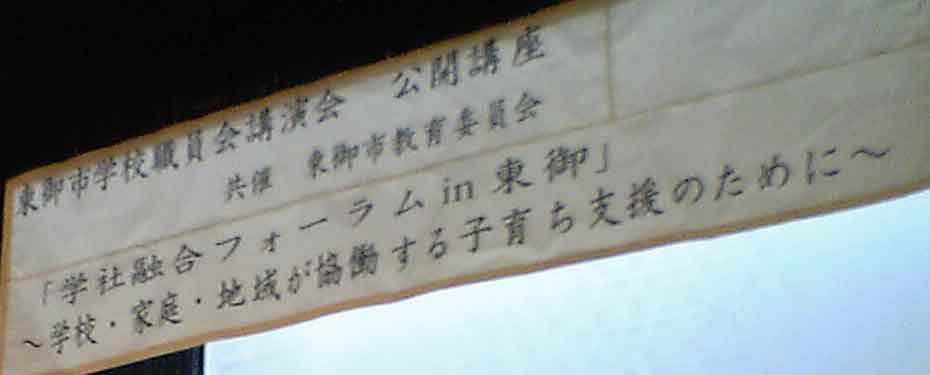 東御市学校職員会講演会　公開講座
共催　東御市教育委員会
「学社融合フォーラムin東御」
～学校・家庭・地域が協働する子育ち支援のために～